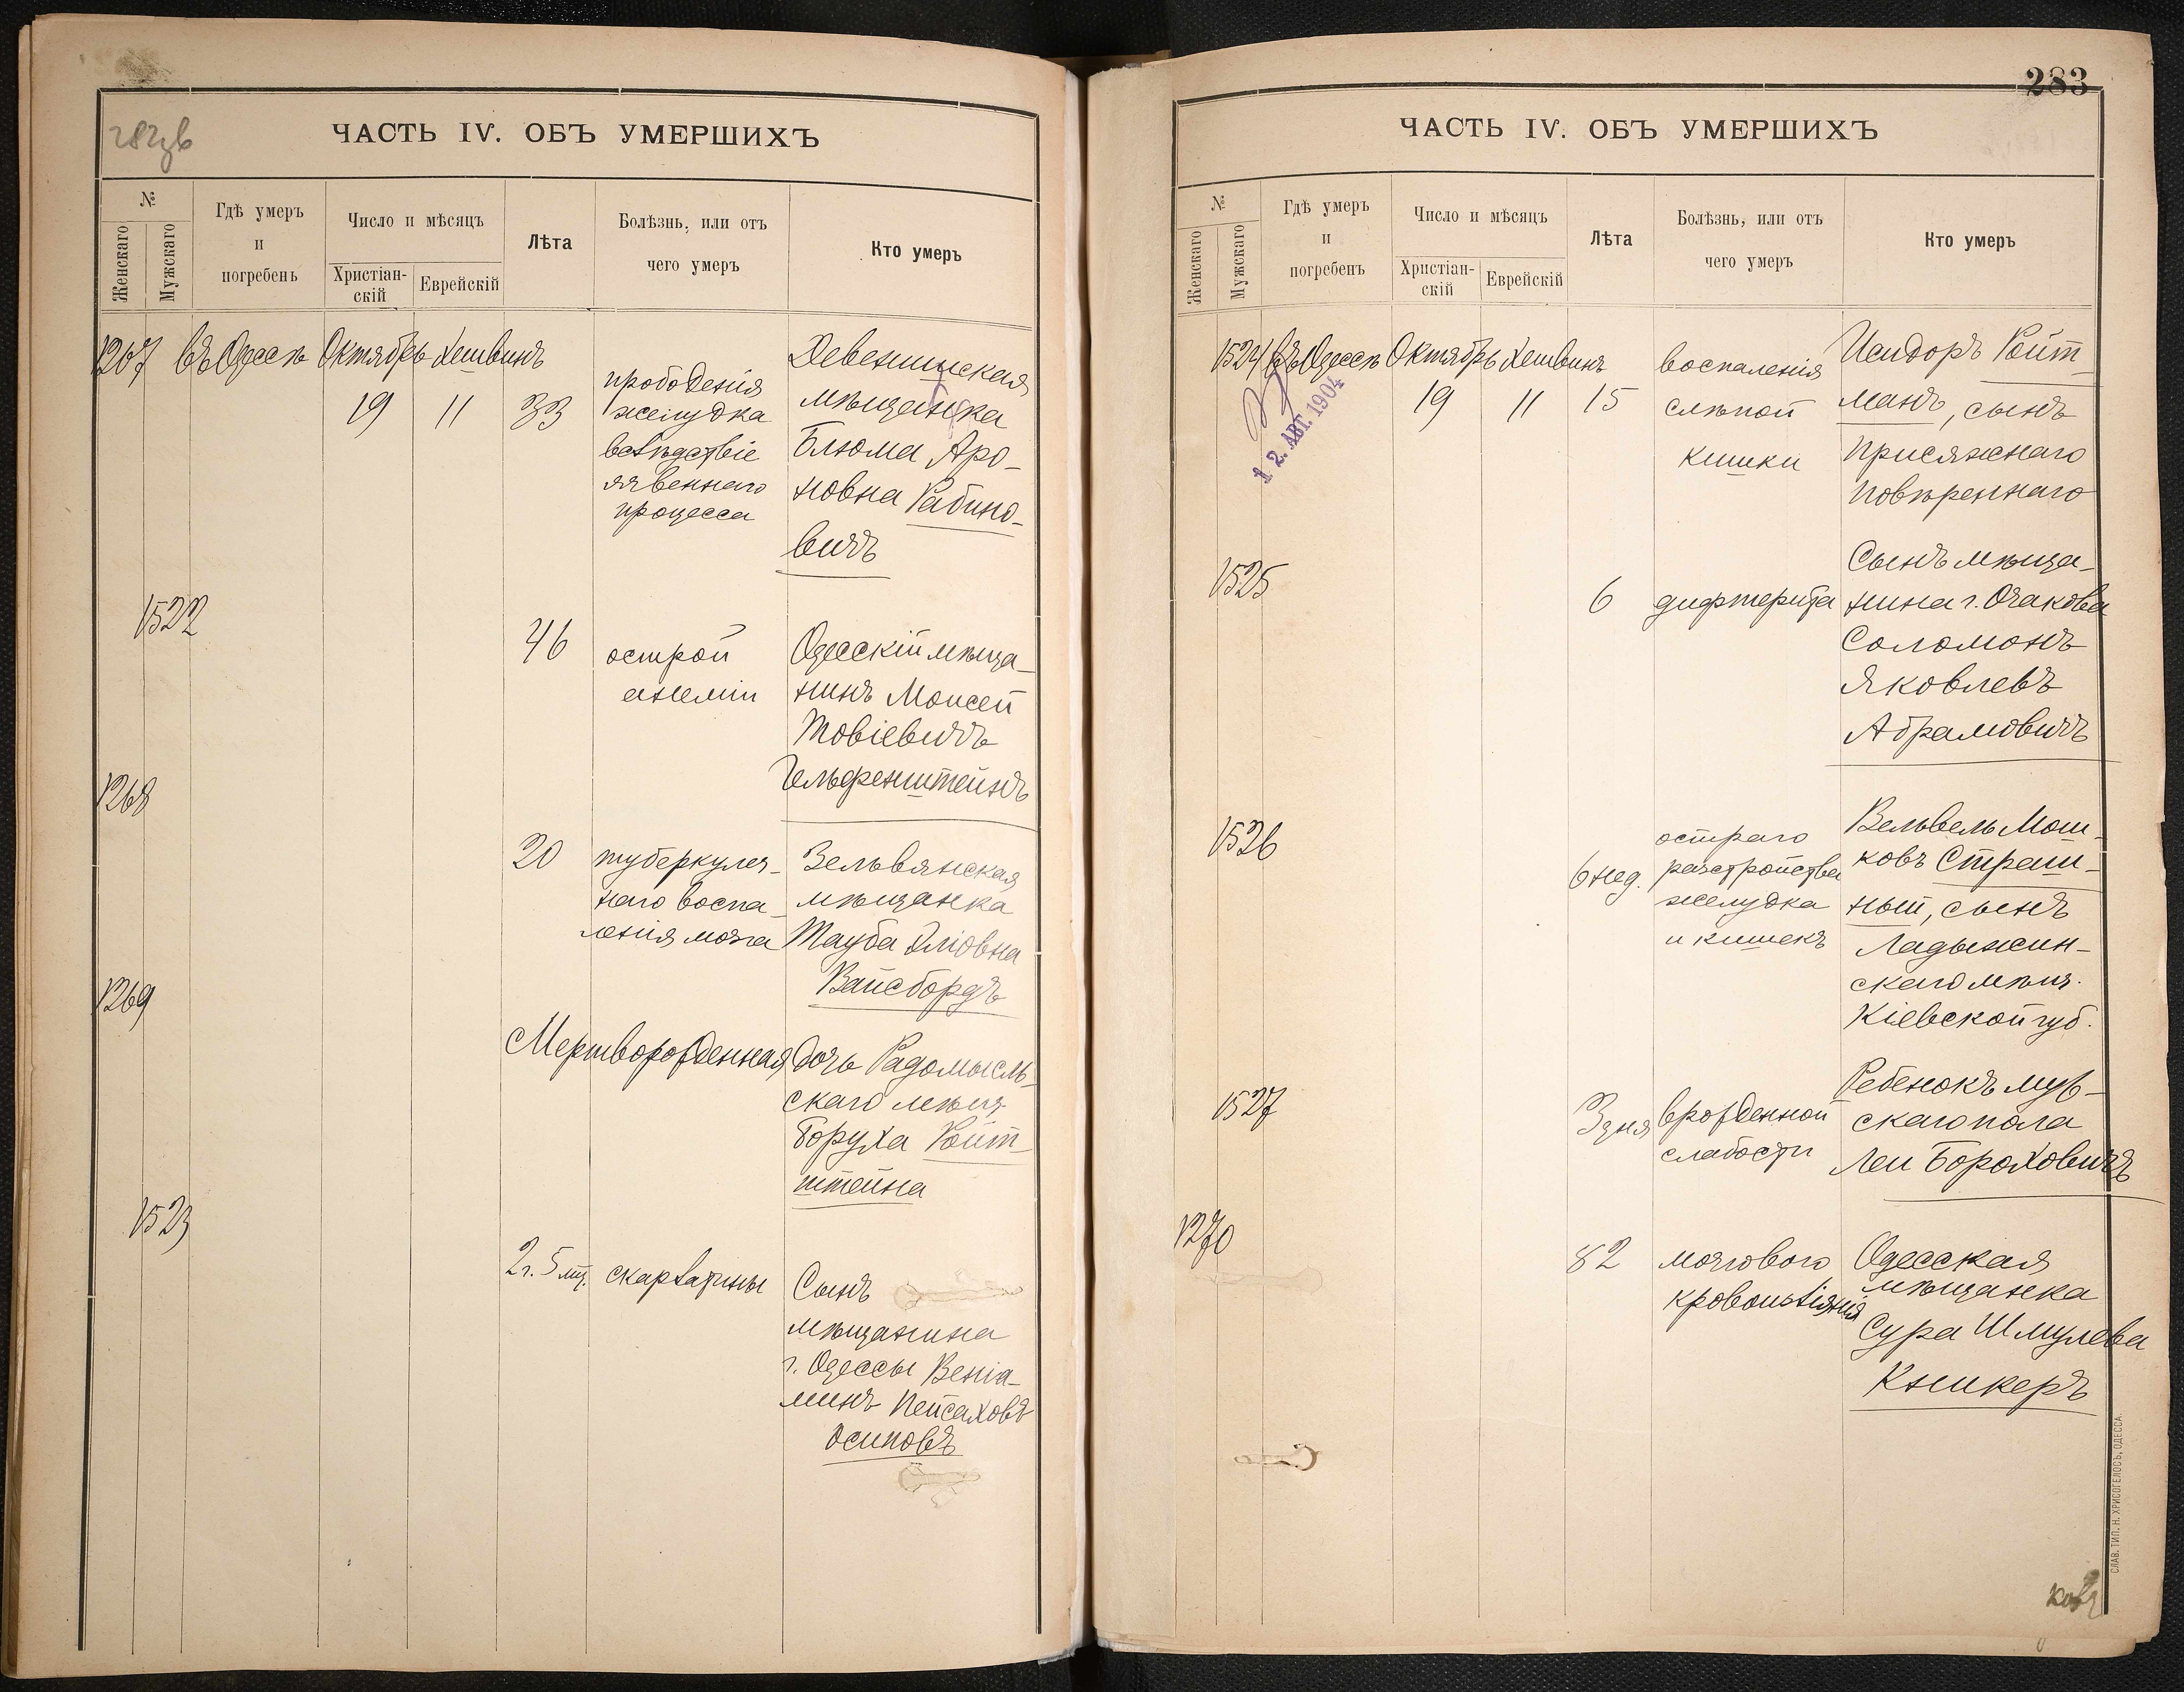 ЧАСТЬ IV. ОБЪ УМЕРШИХЪ
№
Женскаго
Мужскаго
Гдѣ умеръ
и
погребенъ
Число и мѣсяцъ
Христіан-
скій
Еврейскій
Лѣта
Болѣзнь, или отъ
чего умеръ
Кто умеръ
1267 въ Одессѣ Октябрь Хешвинъ
19 11 33
прободенія
желудка
вслѣдствіе
язвеннаго
процесса
Девенишская
мѣщанка
Блюма Аро-
новна Рабино-
вичъ
1522
46
острой
анеміи
Одесскій мѣща-
нинъ Моисей
Товіевичъ
Гельфенштейнъ
1268
20
туберкулез-
наго воспа-
ленія мозга
Зельвянская
мѣщанка
Тауба Эліовна
Вайсбордъ
1269
Мертворожденная
Дочь Радомысль-
скаго мѣщ.
Боруха Ройт-
штейна
1523
2 г. 5 мц.
скарлатины
Сынъ
мѣщанина
г. Одессы Веніа-
минъ Пейсаховъ
Осиповъ
283
ЧАСТЬ IV. ОБЪ УМЕРШИХЪ
№
Женскаго
Мужскаго
Гдѣ умеръ
и
погребенъ
Число и мѣсяцъ
Христіан-
скій
Еврейскій
Лѣта
Болѣзнь, или отъ
чего умеръ
Кто умеръ
1524 въ Одессѣ Октябрь Хешвинъ
19 11 15
12. АВГ. 1904
воспаленія
слѣпой
кишки
Исидоръ Ройт-
манъ, сынъ
Присяжнаго
Повѣреннаго
1525
6
дифтерита
Сынъ мѣща-
нина г. Очакова
Соломонъ
Яковлевъ
Абрамовичъ
1526
6 нед.
остраго
разстройства
желудка
и кишекъ
Вельвель Мош-
ковъ Страш-
ный, сынъ
Ладыжин-
скаго мѣщ.
Кіевской губ.
1527
3 дня
врожденной
слабости
Ребенокъ муж-
скаго пола
Леи Бороховичъ
1270
82
мозгового
кровоизліянія
Одесская
мѣщанка
Сура Шмулева
Кникеръ
СЛАВ. ТИП. Н. ХРИСОГЕЛОСЪ, ОДЕССА.